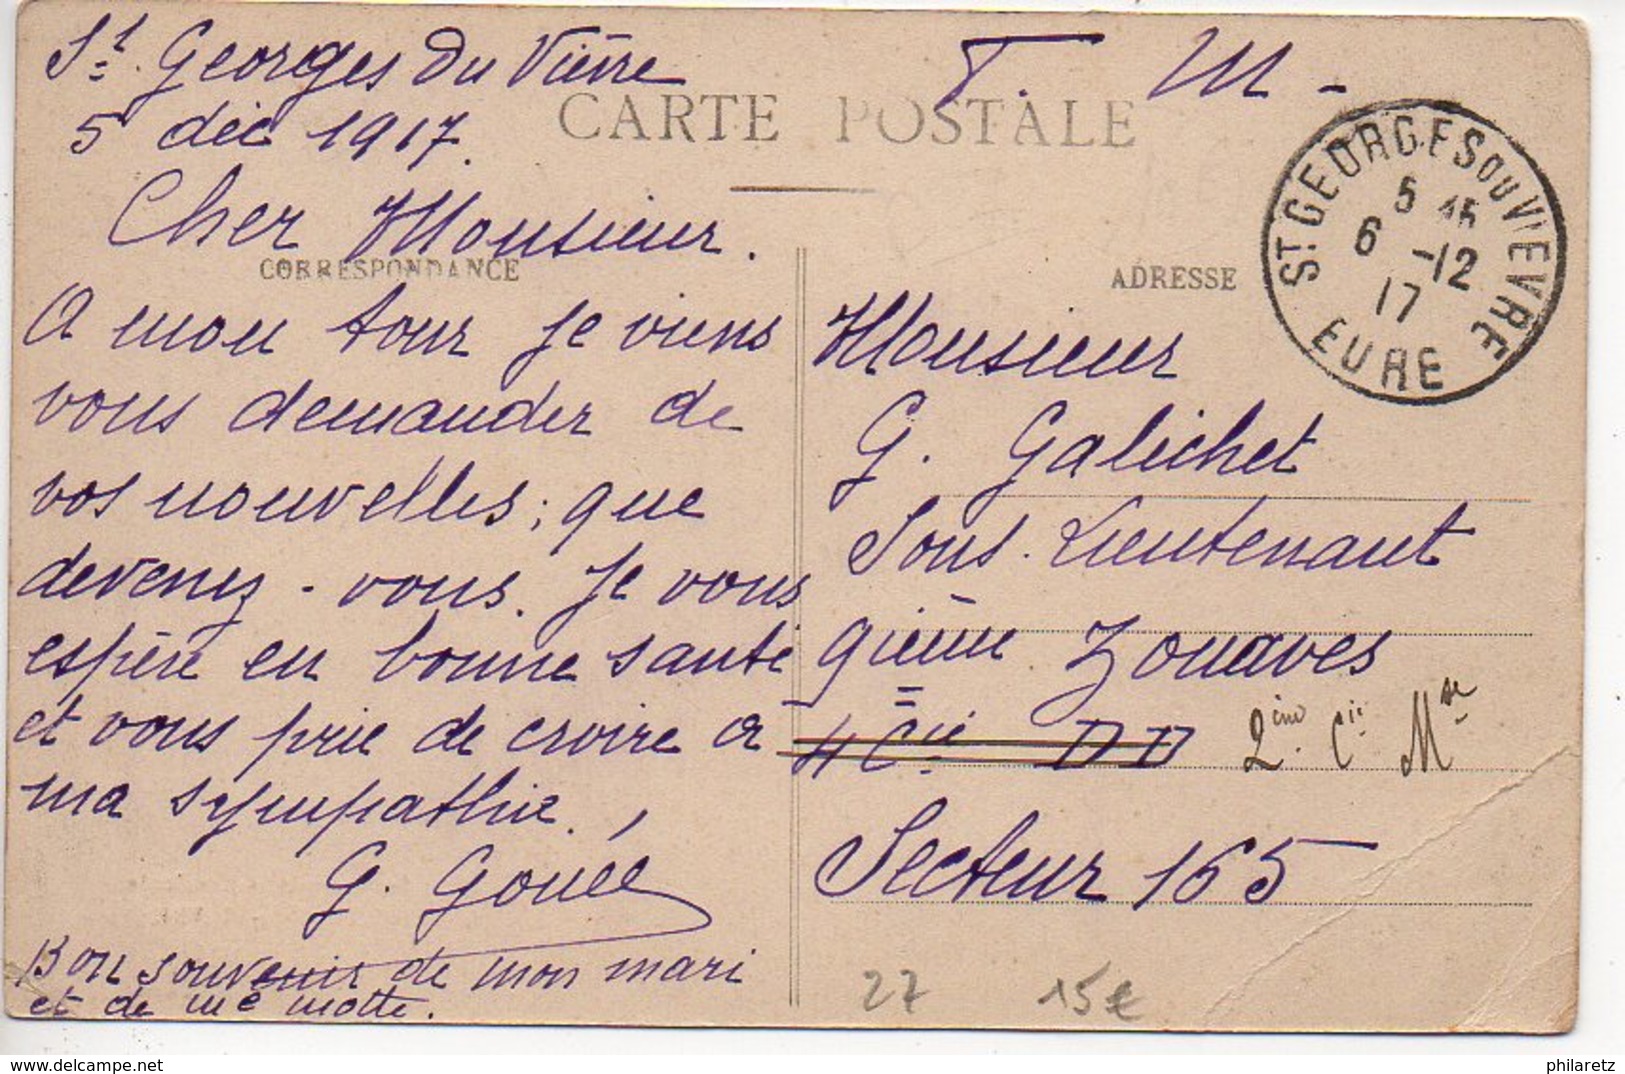 St. Georges Du Vièvre
5 déc 1917.
Cher Monsieur.
CARTE POSTALE
CORRESPONDANCE
A mon tour je viens
vous demander de
vos nouvelles; que
devenez-vous. Je vous
espère en bonne santé
et vous prie de croire à
ma sympathie.
G. Gouée
Bon souvenir de mon mari
et de me motte.
F. M.
ST GEORGES DU VIEVRE
5 45
6 -12
17
EURE
ADRESSE
Monsieur
G. Galichet
Sous-Lieutenant
9ième Zouaves
4 Cie DD 2ème Cie Mse
Secteur 165
27 15€
philaretz